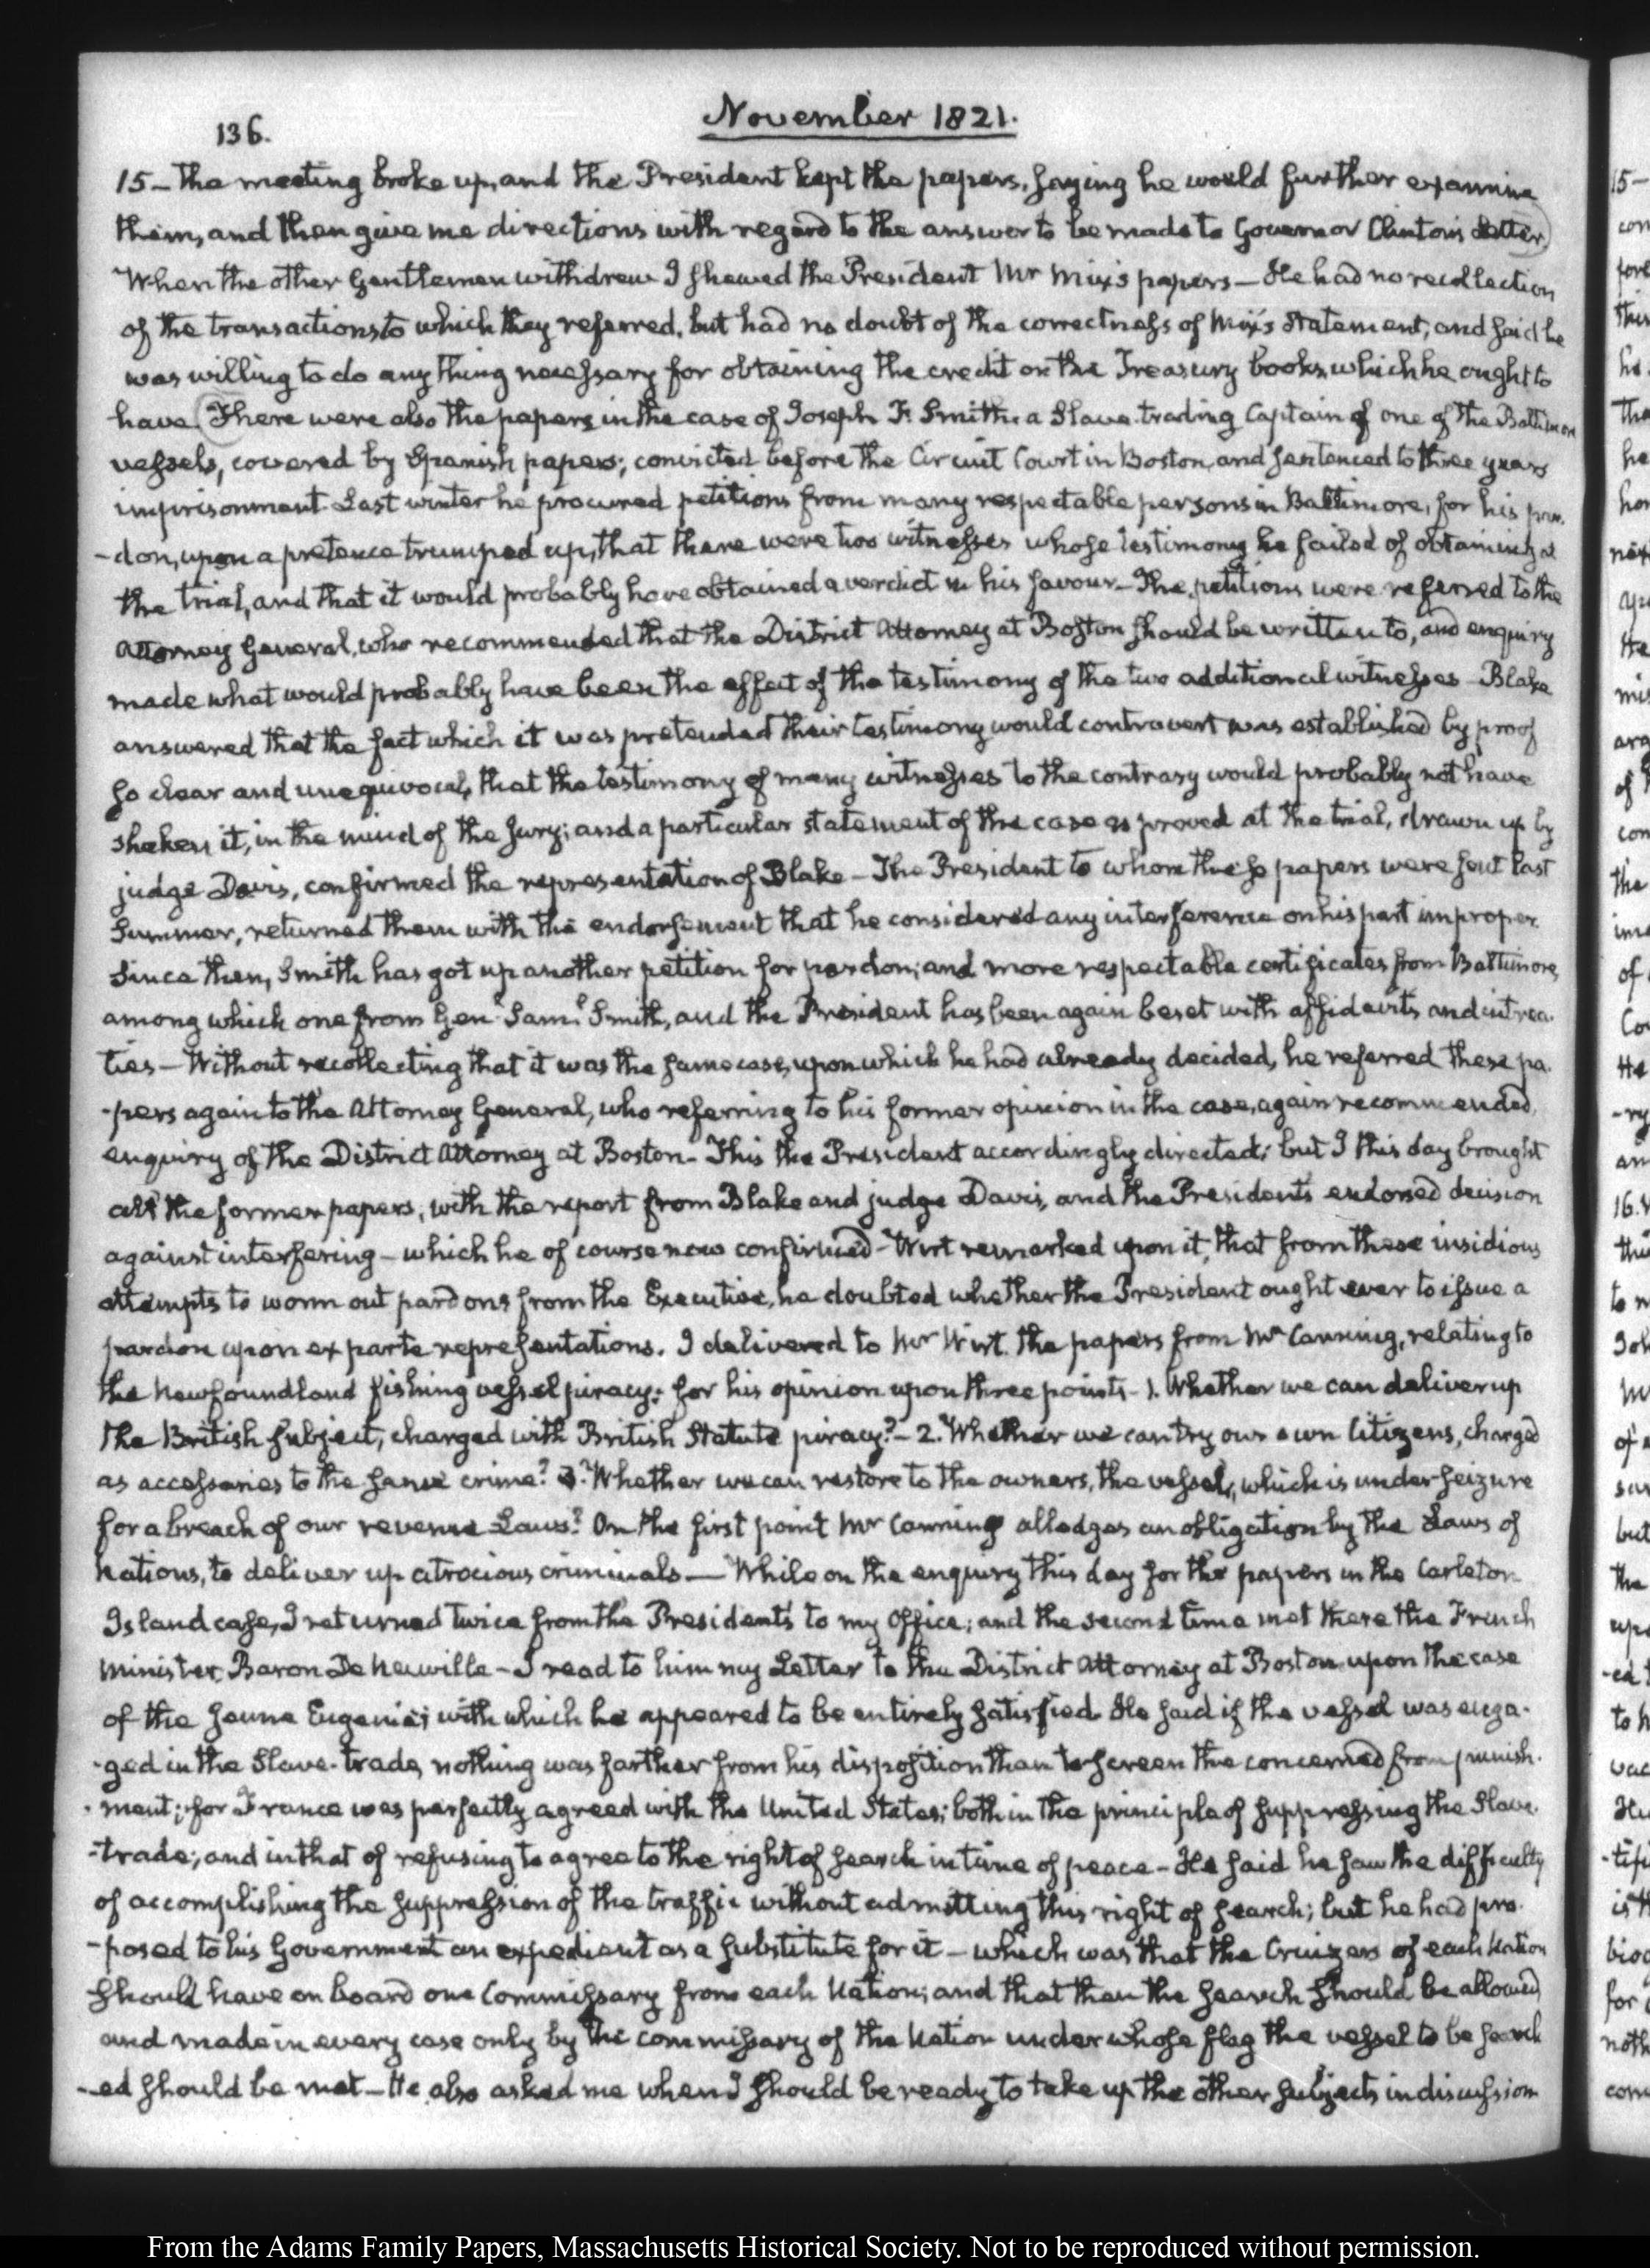 136.
November 1821.
15 — The meeting broke up, and the President kept the papers, saying he would further examine
them, and then give me directions with regard to the answer to be made to Governor Clinton's Letter)
When the other Gentlemen withdrew I shewed the President Mr Mix's papers — He had no recollection
of the transactions to which they referred, but had no doubt of the correctness of Mix's statement; and said he
was willing to do any thing necessary for obtaining the credit on the Treasury books, which he ought to
have (There were also the papers in the case of Joseph F. Smith, a Slave-trading Captain of one of the Baltimore
vessels, covered by Spanish papers; convicted before the Circuit Court in Boston, and sentenced to three years
imprisonment. Last winter he procured petitions from many respectable persons in Baltimore, for his par-
-don, upon a pretence trumped up, that there were two witnesses whose testimony he failed of obtaining at
the trial, and that it would probably have obtained a verdict in his favour — The petitions were referred to the
Attorney General, who recommended that the District Attorney at Boston should be written to, and enquiry
made what would probably have been the effect of the testimony of the two additional witnesses — Blake
answered that the fact which it was pretended their testimony would controvert was established by proof
so clear and unequivocal, that the testimony of many witnesses to the contrary would probably not have
shaken it, in the mind of the Jury; and a particular statement of the case as proved at the trial, drawn up by
judge Davis, confirmed the representation of Blake — The President to whom these papers were sent last
Summer, returned them with the endorsement that he considered any interference on his part improper.
Since then, Smith has got up another petition for pardon; and more respectable certificates from Baltimore,
among which one from Genl. Saml. Smith, and the President has been again beset with affidavits and intrea-
ties — Without recollecting that it was the same case, upon which he had already decided, he referred these pa-
-pers again to the Attorney General, who referring to his former opinion in the case, again recommended
enquiry of the District Attorney at Boston — This the President accordingly directed; but I this day brought
all the former papers, with the report from Blake and judge Davis, and the President's endorsed decision
against interfering — which he of course now confirmed — Wirt remarked upon it, that from these insidious
attempts to worm out pardons from the Executive, he doubted whether the President ought ever to issue a
pardon upon ex parte representations. I delivered to Mr Wirt the papers from Mr Canning, relating to
the Newfoundland fishing vessel piracy: for his opinion upon three points — 1. Whether we can deliver up
the British subject, charged with British Statute piracy? — 2. Whether we can try our own Citizens, charged
as accessaries to the same crime? 3. Whether we can restore to the owners, the vessel, which is under seizure
for a breach of our revenue Laws? On the first point Mr Canning alledges an obligation by the Laws of
Nations, to deliver up atrocious criminals — While on the enquiry this day for the papers in the Carleton
Island case, I returned twice from the President's to my Office; and the second time met there the French
Minister, Baron De Neuville — I read to him my Letter to the District Attorney at Boston upon the case
of the Jeune Eugenie; with which he appeared to be entirely satisfied. He said if the vessel was enga-
-ged in the Slave-trade, nothing was farther from his disposition than to screen the concerned from punish-
-ment; for France was perfectly agreed with the United States; both in the principle of suppressing the Slave-
-trade; and in that of refusing to agree to the right of search in time of peace — He said he saw the difficulty
of accomplishing the suppression of the traffic without admitting this right of search; but he had pro-
-posed to his Government an expedient as a substitute for it — which was that the Cruizers of each Nation
should have on board one Commissary from each Nation; and that then the search should be allowed
and made in every case only by the commissary of the Nation under whose flag the vessel to be search
-ed should be met — He also asked me when I should be ready to take up the other subjects in discussion
From the Adams Family Papers, Massachusetts Historical Society. Not to be reproduced without permission.